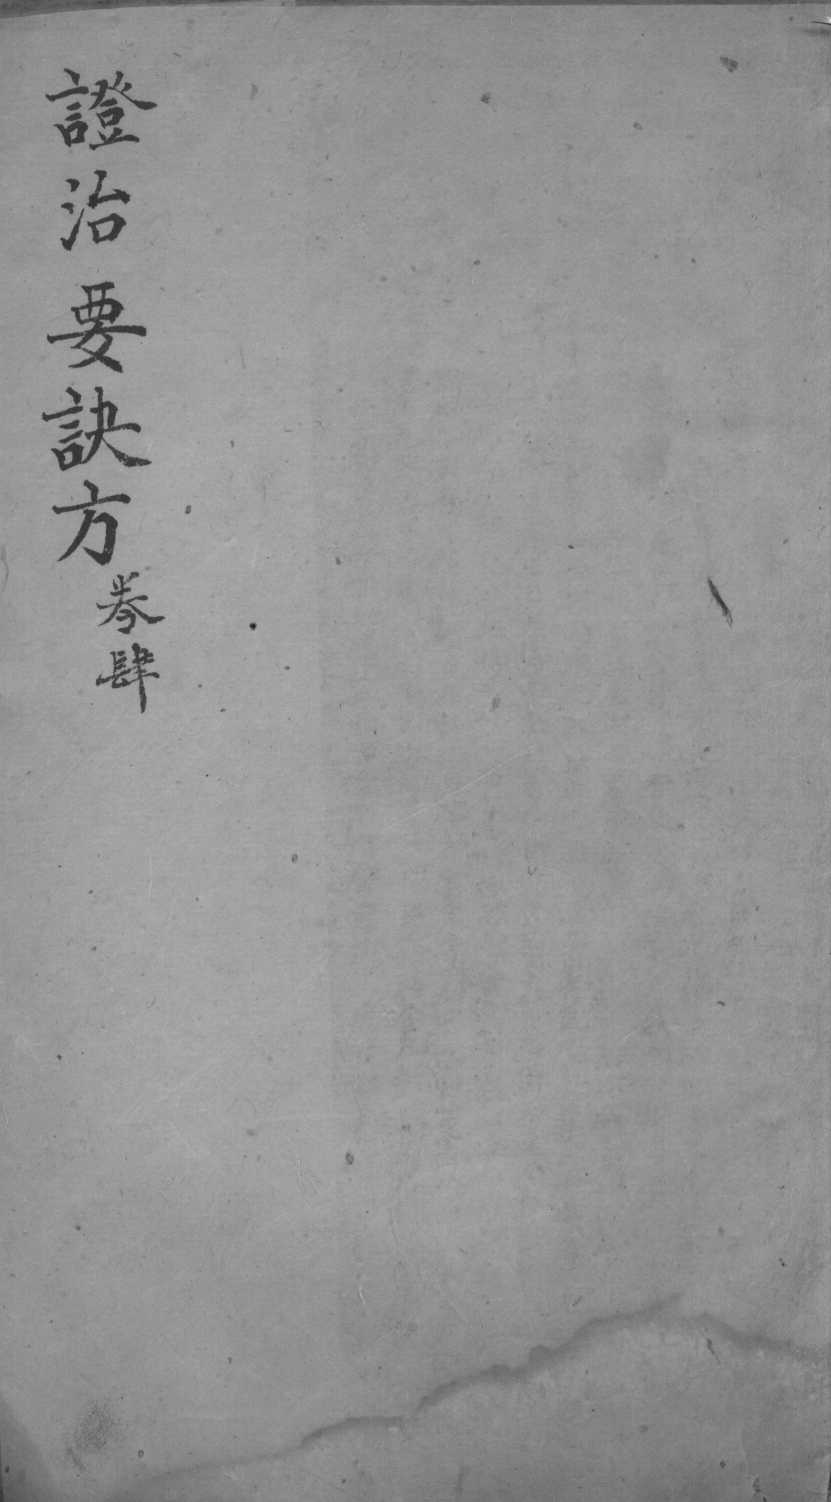 證治要訣方
卷肆